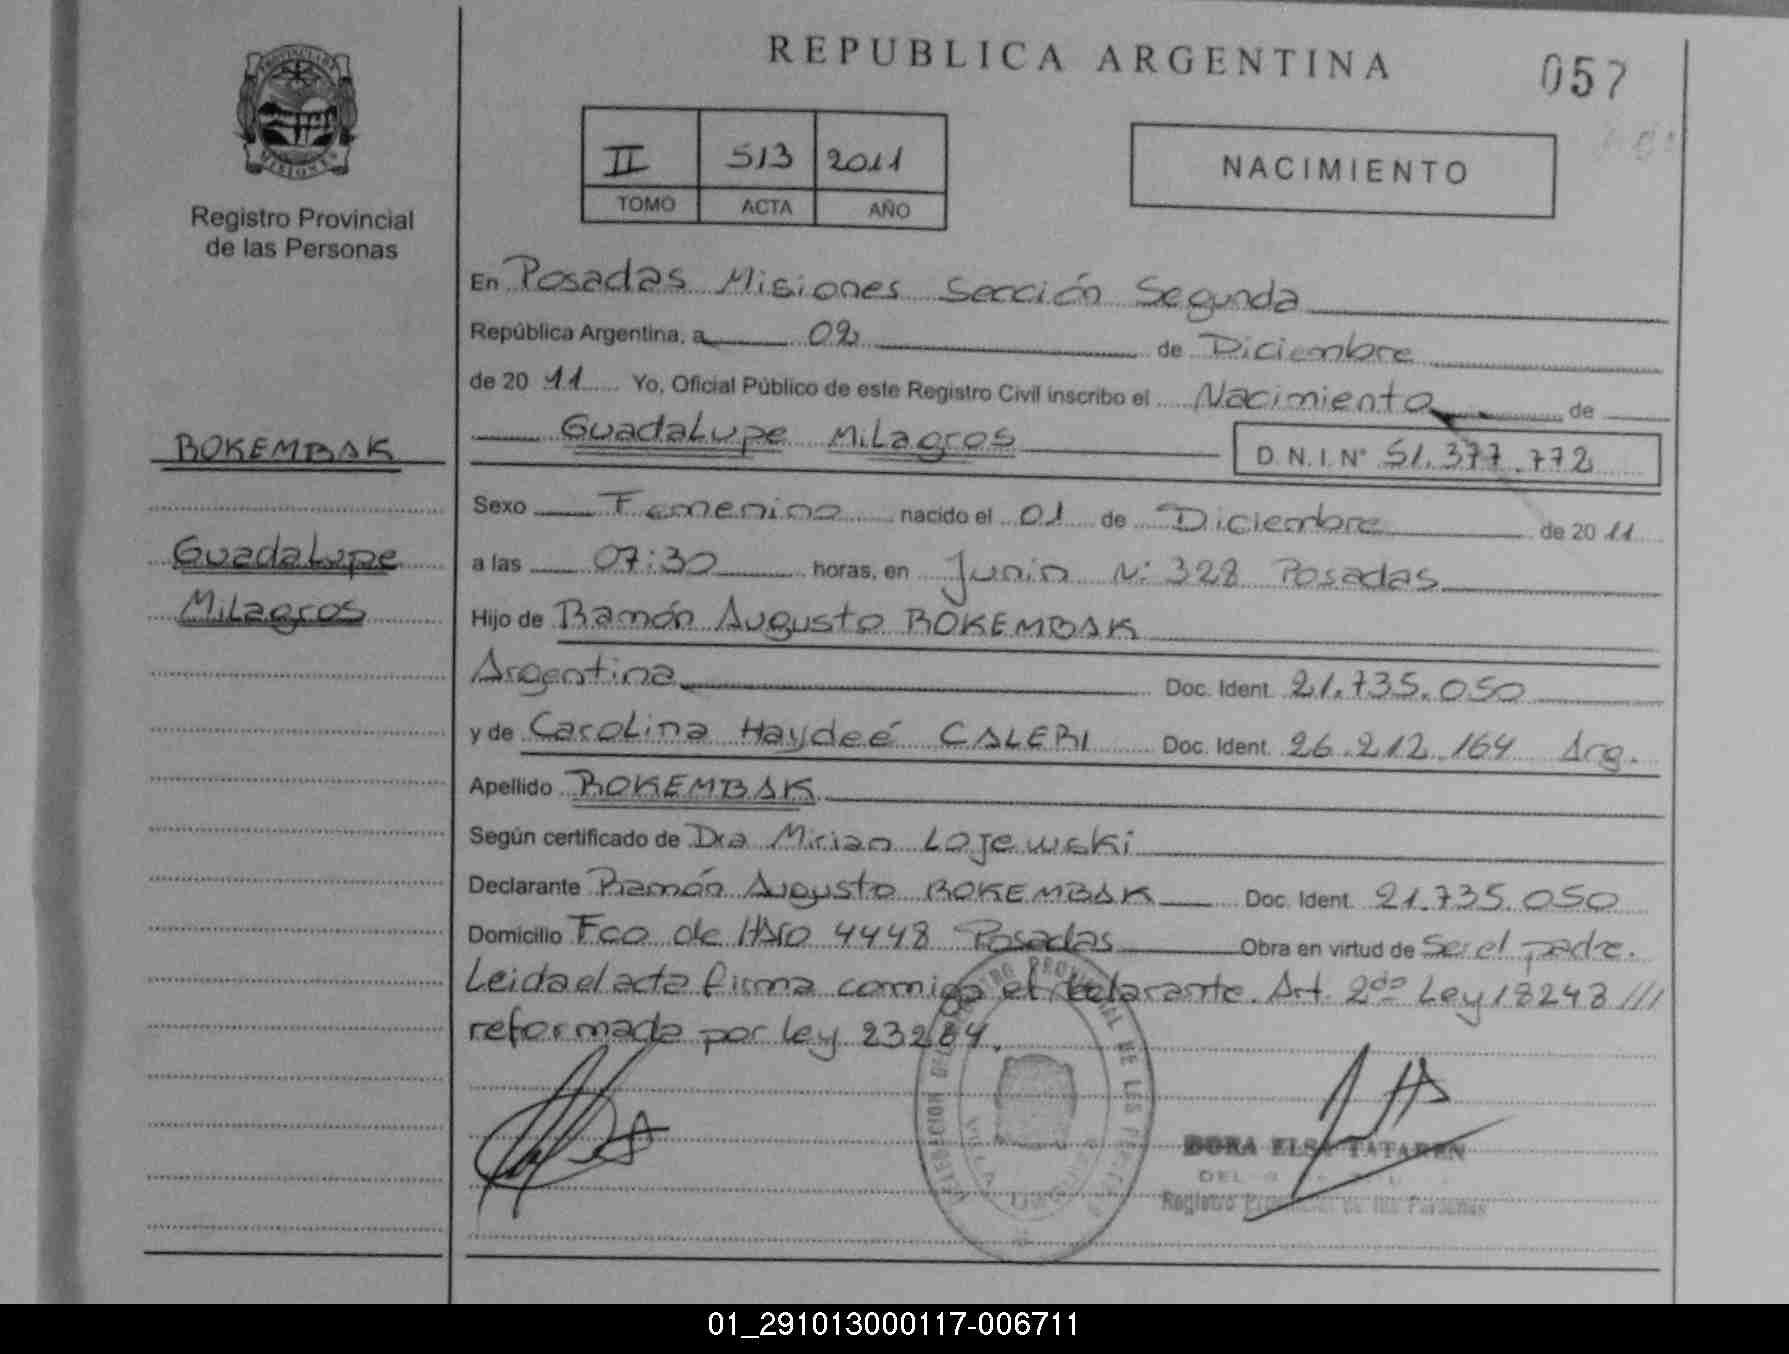 REPUBLICA ARGENTINA
057
PROVINCIA DE
MISIONES
Registro Provincial
de las Personas
II 513 2011
TOMO ACTA AÑO
NACIMIENTO
En Posadas Misiones Sección Segunda
República Argentina, a 02 de Diciembre
de 20 11 Yo, Oficial Público de este Registro Civil inscribo el Nacimiento de
Guadalupe Milagros D.N.I.N° 51.377.772
Sexo Femenino nacido el 01 de Diciembre de 20 11
a las 07:30 horas, en Junin N: 328 Posadas
Hijo de Ramón Augusto ROKEMBAK
Argentina Doc. Ident. 21.735.050
y de Carolina Haydeé CALERI Doc. Ident. 26.212.164 Arg.
Apellido ROKEMBAK
Según certificado de Dra Mirian Lojewski
Declarante Ramón Augusto ROKEMBAK Doc. Ident. 21.735.050
Domicilio Fco de HARO 4448 Posadas Obra en virtud de Ser el padre.
Leida el acta firma conmigo el declarante. Art. 2do Ley 18248 ///
reformada por ley 23264.
ROKEMBAK
Guadalupe
Milagros
REGISTRO PROVINCIAL DE LAS
DORA ELSA
Registro Provincial de las Personas
01_291013000117-006711